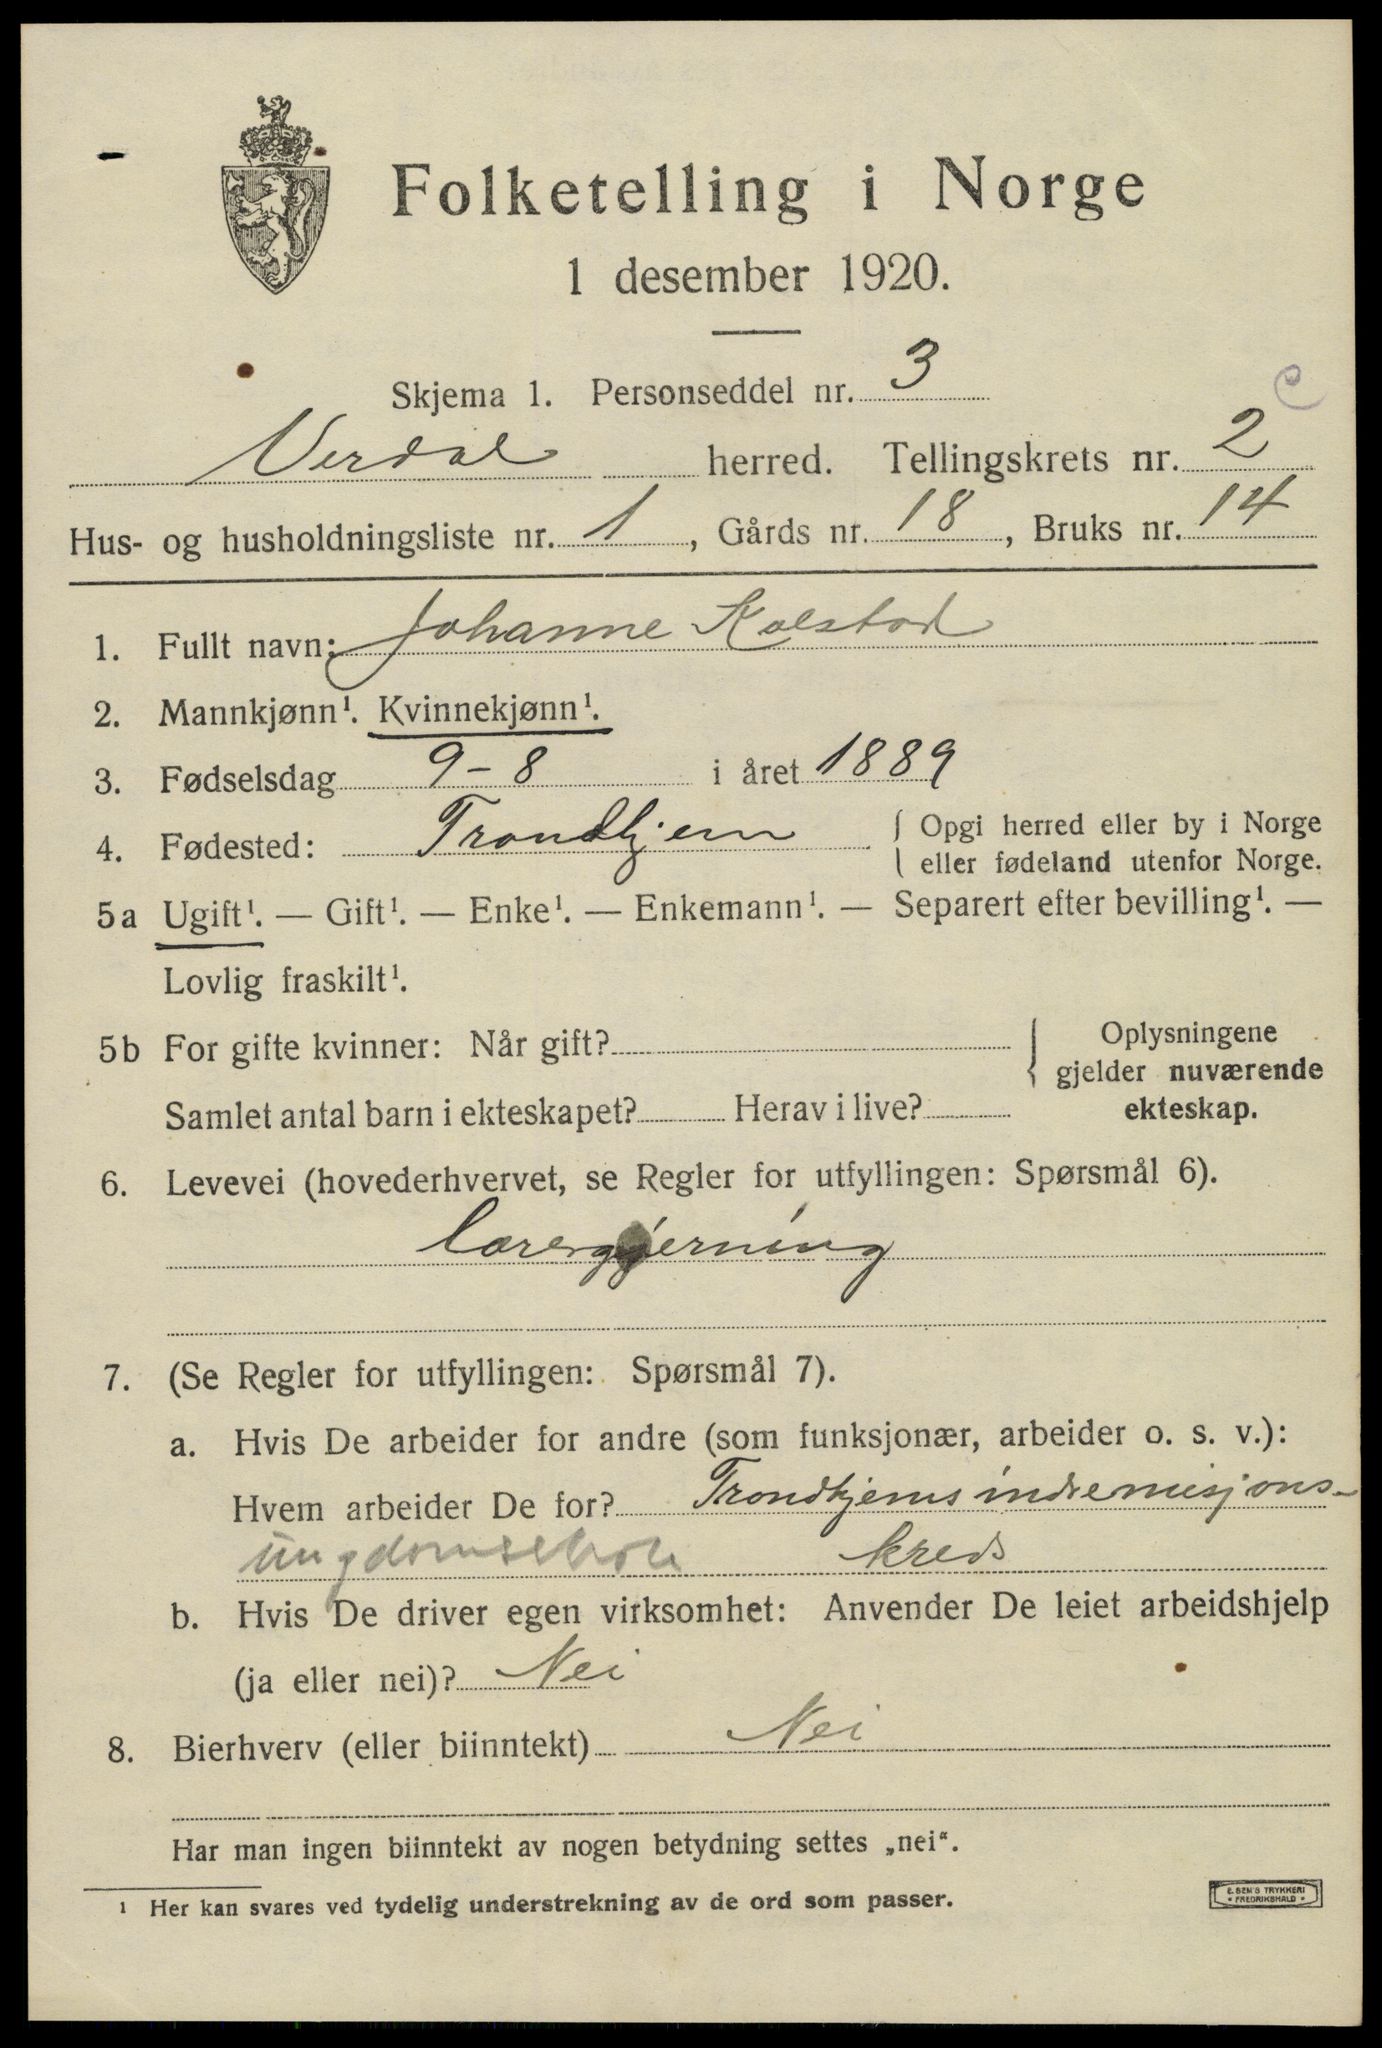 Folketelling i Norge
1 desember 1920.
Skjema 1. Personseddel nr. 3
C
Verdal herred. Tellingskrets nr. 2
Hus- og husholdningsliste nr. 1, Gårds nr. 18, Bruks nr. 14
1. Fullt navn: Johanne Kolstad
2. Mannkjønn¹. Kvinnekjønn¹.
3. Fødselsdag 9-8 i året 1889
4. Fødested: Trondhjem { Opgi herred eller by i Norge
eller fødeland utenfor Norge.
5a Ugift¹. — Gift¹. — Enke¹. — Enkemann¹. — Separert efter bevilling¹. —
Lovlig fraskilt¹.
5b For gifte kvinner: Når gift? { Oplysningene
gjelder nuværende
Samlet antal barn i ekteskapet? Herav i live? ekteskap.
6. Levevei (hovederhvervet, se Regler for utfyllingen: Spørsmål 6).
lærergjerning
7. (Se Regler for utfyllingen: Spørsmål 7).
a. Hvis De arbeider for andre (som funksjonær, arbeider o. s. v.):
Hvem arbeider De for? Trondhjems indremisjons-
ungdomsskole kreds
b. Hvis De driver egen virksomhet: Anvender De leiet arbeidshjelp
(ja eller nei)? Nei
8. Bierhverv (eller biinntekt) Nei
Har man ingen biinntekt av nogen betydning settes „nei“.
¹ Her kan svares ved tydelig understrekning av de ord som passer.
E. SEM'S TRYKKERI
• FREDRIKSHALD •